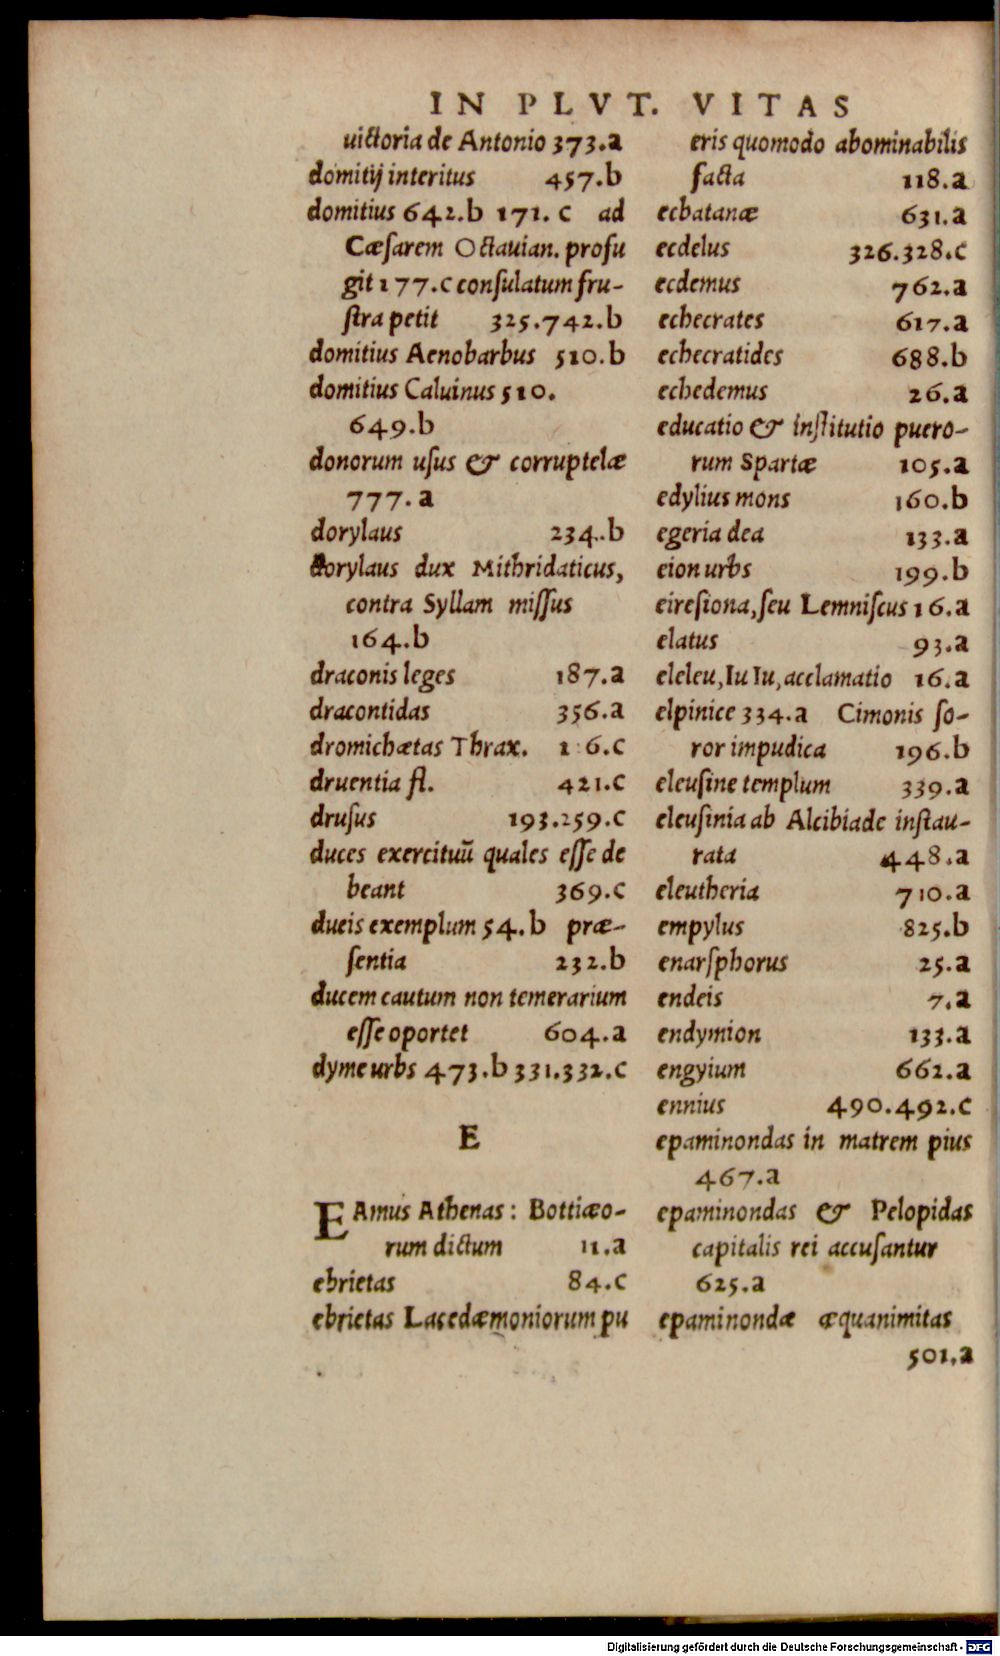 IN PLVT. VITAS
uictoria de Antonio 373.a
domitij interitus 457.b
domitius 642.b 171.c ad
Cæsarem Octauian. profu
git 177.c consulatum fru-
stra petit 325.742.b
domitius Aenobarbus 510.b
domitius Caluinus 510.
649.b
donorum usus & corruptelæ
777.a
dorylaus 234.b
dorylaus dux Mithridaticus,
contra Syllam missus
164.b
draconis leges 187.a
dracontidas 356.a
dromichætas Thrax. 1 6.c
druentia fl. 421.c
drusus 193.259.c
duces exercituū quales esse de
beant 369.c
dueis exemplum 54.b præ-
sentia 232.b
ducem cautum non temerarium
esse oportet 604.a
dyme urbs 473.b 331.332.c
E
EAmus Athenas: Bottiæo-
rum dictum 11.a
ebrietas 84.c
ebrietas Lacedæmoniorum pu
eris quomodo abominabilis
facta 118.a
ecbatanæ 631.a
ecdelus 326.328.c
ecdemus 762.a
echecrates 617.a
echecratides 688.b
echedemus 26.a
educatio & institutio puero-
rum Spartæ 105.a
edylius mons 160.b
egeria dea 133.a
eion urbs 199.b
eiresiona, seu Lemniscus 16.a
elatus 93.a
eleleu, Iu Iu, acclamatio 16.a
elpinice 334.a Cimonis so-
ror impudica 196.b
eleusine templum 339.a
eleusinia ab Alcibiade instau-
rata 448.a
eleutheria 710.a
empylus 825.b
enarsphorus 25.a
endeis 7.a
endymion 133.a
engyium 662.a
ennius 490.492.c
epaminondas in matrem pius
467.a
epaminondas & Pelopidas
capitalis rei accusantur
625.a
epaminondæ æquanimitas
501.a
Digitalisierung gefördert durch die Deutsche Forschungsgemeinschaft - DFG